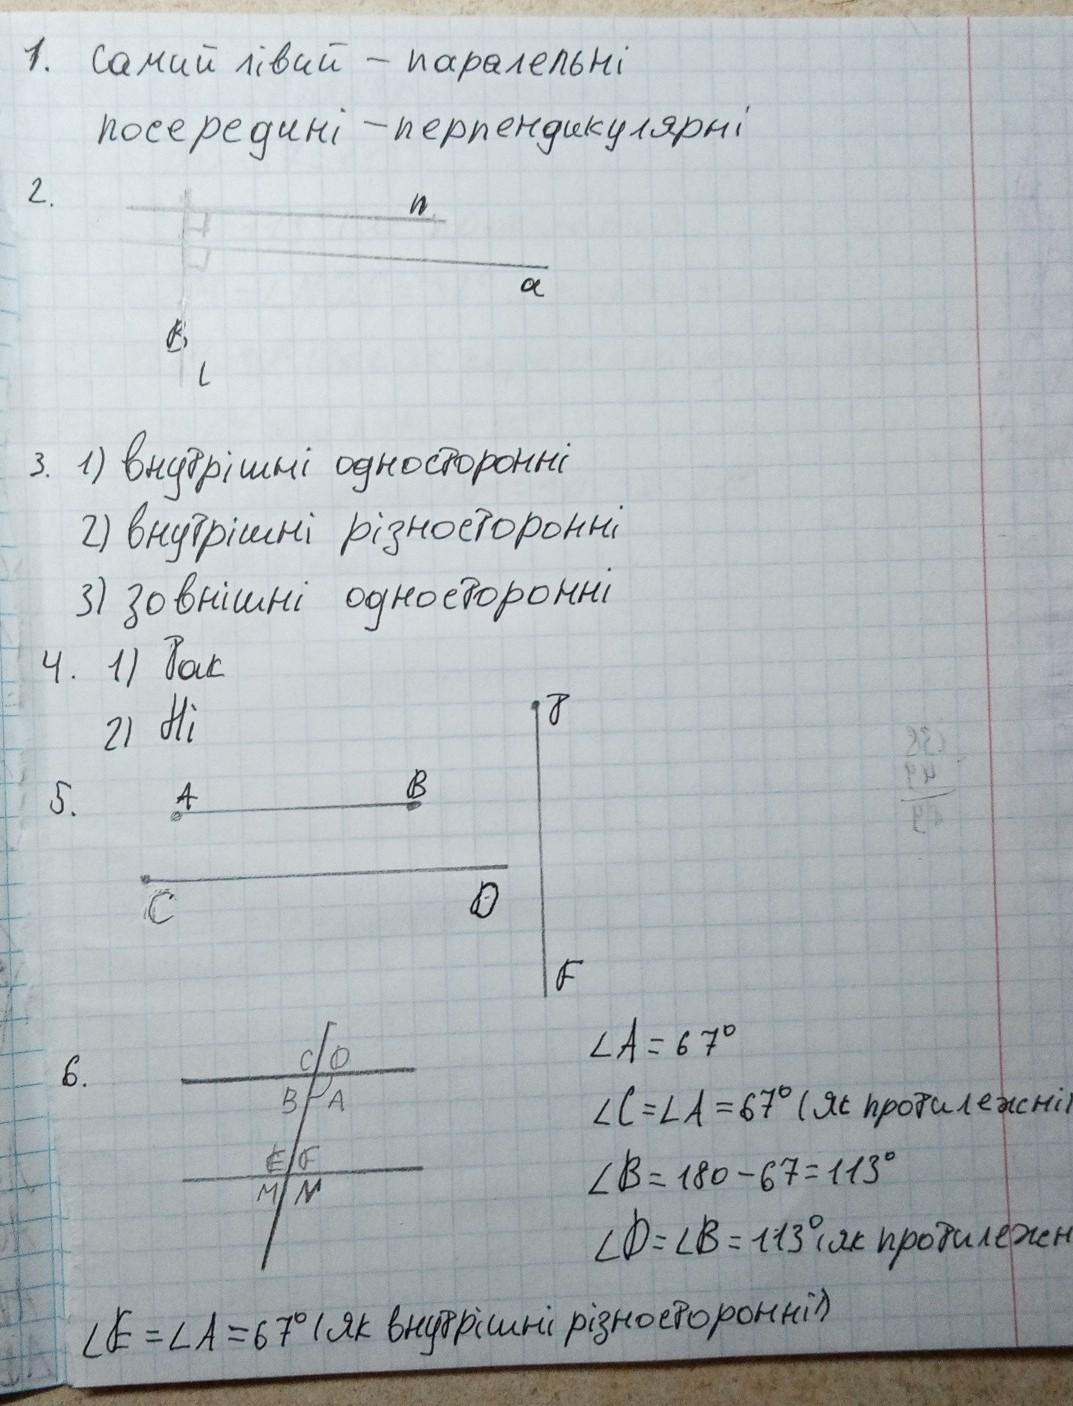 1. Самий лівий – паралельні
посередині – перпендикулярні
2.
n
a
L
3. 1) внутрішні односторонні
2) внутрішні різносторонні
3) зовнішні односторонні
4. 1) Так
2) Ні
5. A B
C D
F
6.
C D
B A
E F
M N
∠A = 67°
∠C = ∠A = 67° (як протилежні)
∠B = 180 – 67 = 113°
∠D = ∠B = 113° (як протилежн
∠E = ∠A = 67° (як внутрішні різносторонні)